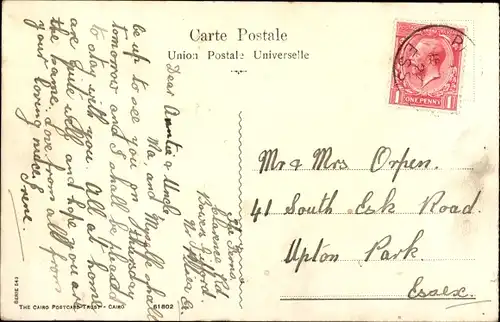 Carte Postale
Union Postale Universelle
The Ferns
Clarence Rd
Bowers Gifford
Dear Auntie & Uncle,
Ma and Myself shall
be up to see you on Thursday
tomorrow and I shall be pleased
to stay with you. All at home
are quite well and hope you are
the same. Love from all from
your loving niece
Irene.
Mr & Mrs Orpen.
41 South Esk Road.
Upton Park.
Essex.
ONE PENNY
1 1
SERIE 543
THE CAIRO POSTCARD TRUST - CAIRO
61802